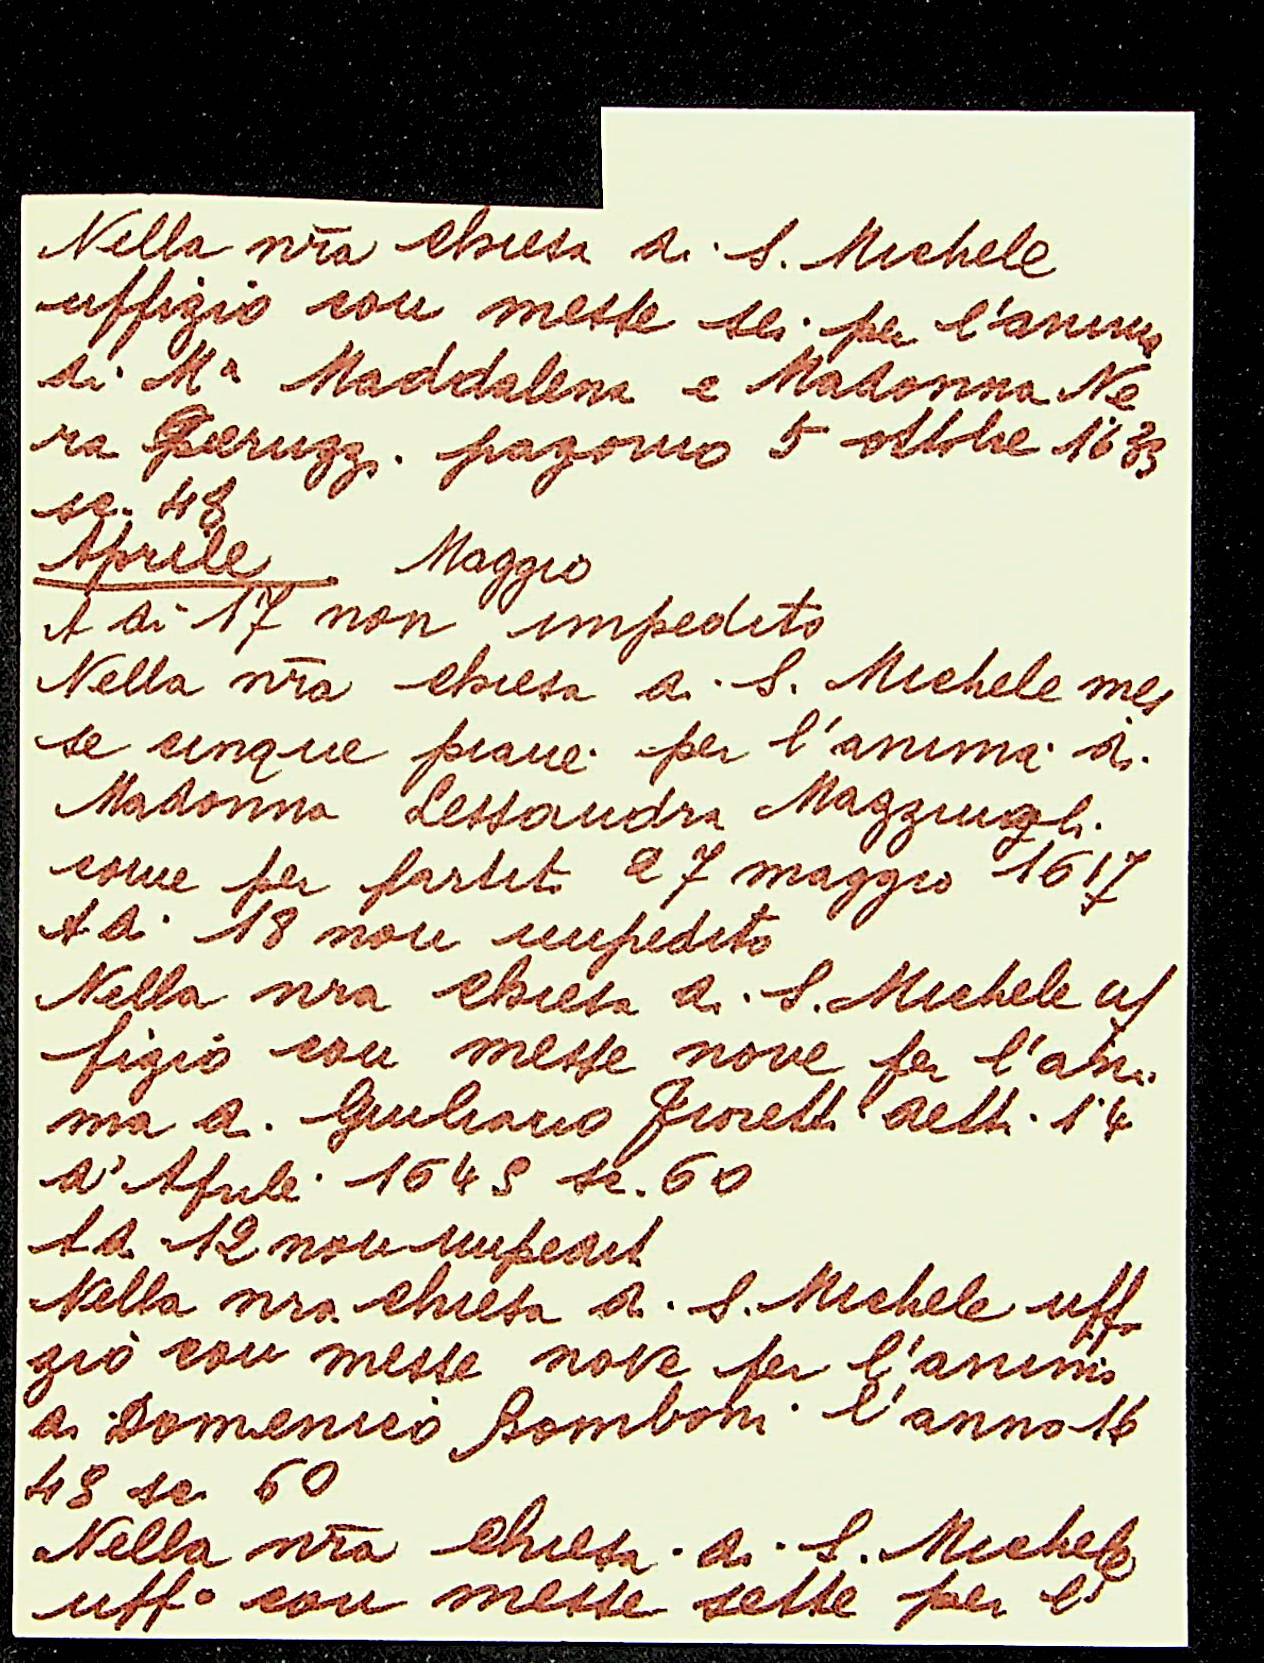 Nella nr̄a chiesa di S. Michele
uffizio con messe sei per l'anima
di Mª Maddalena e Madonna Ne
ra Peruzzi pagorno 5 ottobre 1633
sc. 48
Aprile Maggio
A di 17 non impedito
Nella nr̄a chiesa di S. Michele mes
se cinque piane per l'anima di
Madonna Lessandra Mazzinghi
come per partit. 27 maggio 1617
A di 18 non impedito
Nella nra chiesa di S. Michele uf
fizio con messe nove per l'ani
ma di Giuliano Fioretti detti 14
d'Aprile 1648 sc. 60
A di 12 non impedit
Nella nra chiesa di S. Michele uffi
zio con messe nove per l'anima
di Domenico Bomboni l'anno 16
48 sc. 60
Nella nr̄a chiesa di S. Michele
uff.º con messe sette per l'